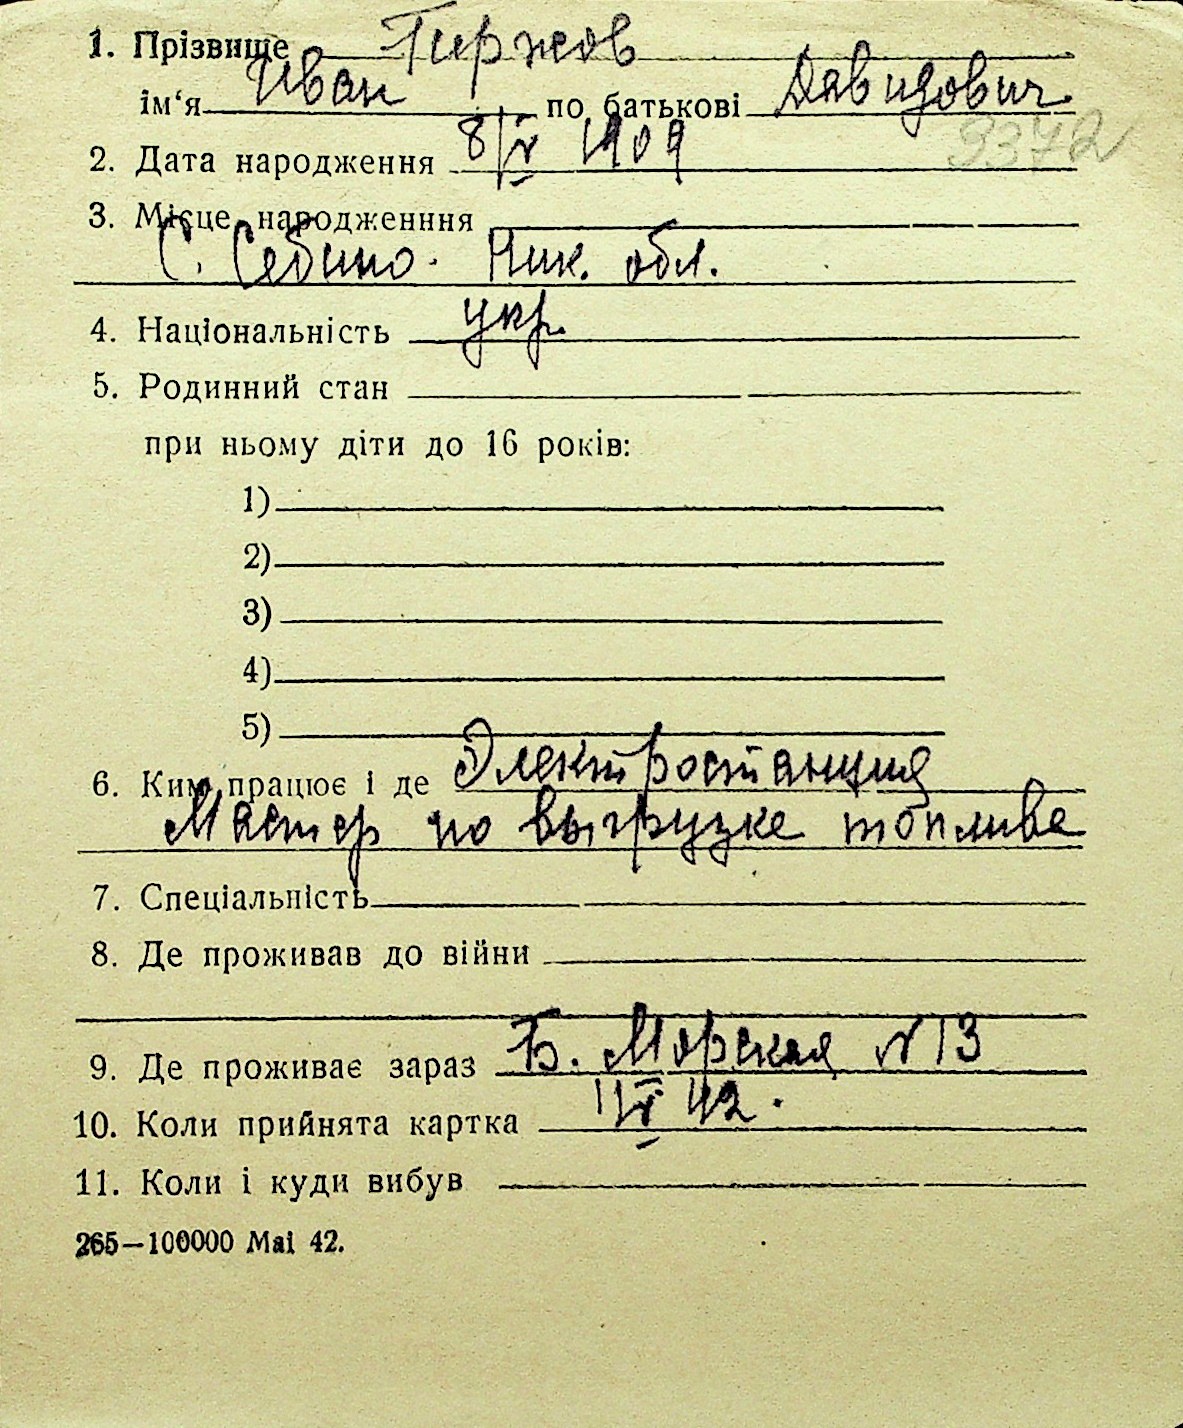 1. Прізвище Гиржов
ім‘я Иван по батькові Давидович
9372
2. Дата народження 8/V 1909
3. Місце народженння
С. Себино. Ник. обл.
4. Національність укр.
5. Родинний стан
при ньому діти до 16 років:
1)
2)
3)
4)
5)
6. Ким працює і де Электростанция
Мастер по выгрузке топлива
7. Спеціальність
8. Де проживав до війни
9. Де проживає зараз Б. Морская № 13
10. Коли прийнята картка 1/V 42.
11. Коли і куди вибув
265—100000 Mai 42.